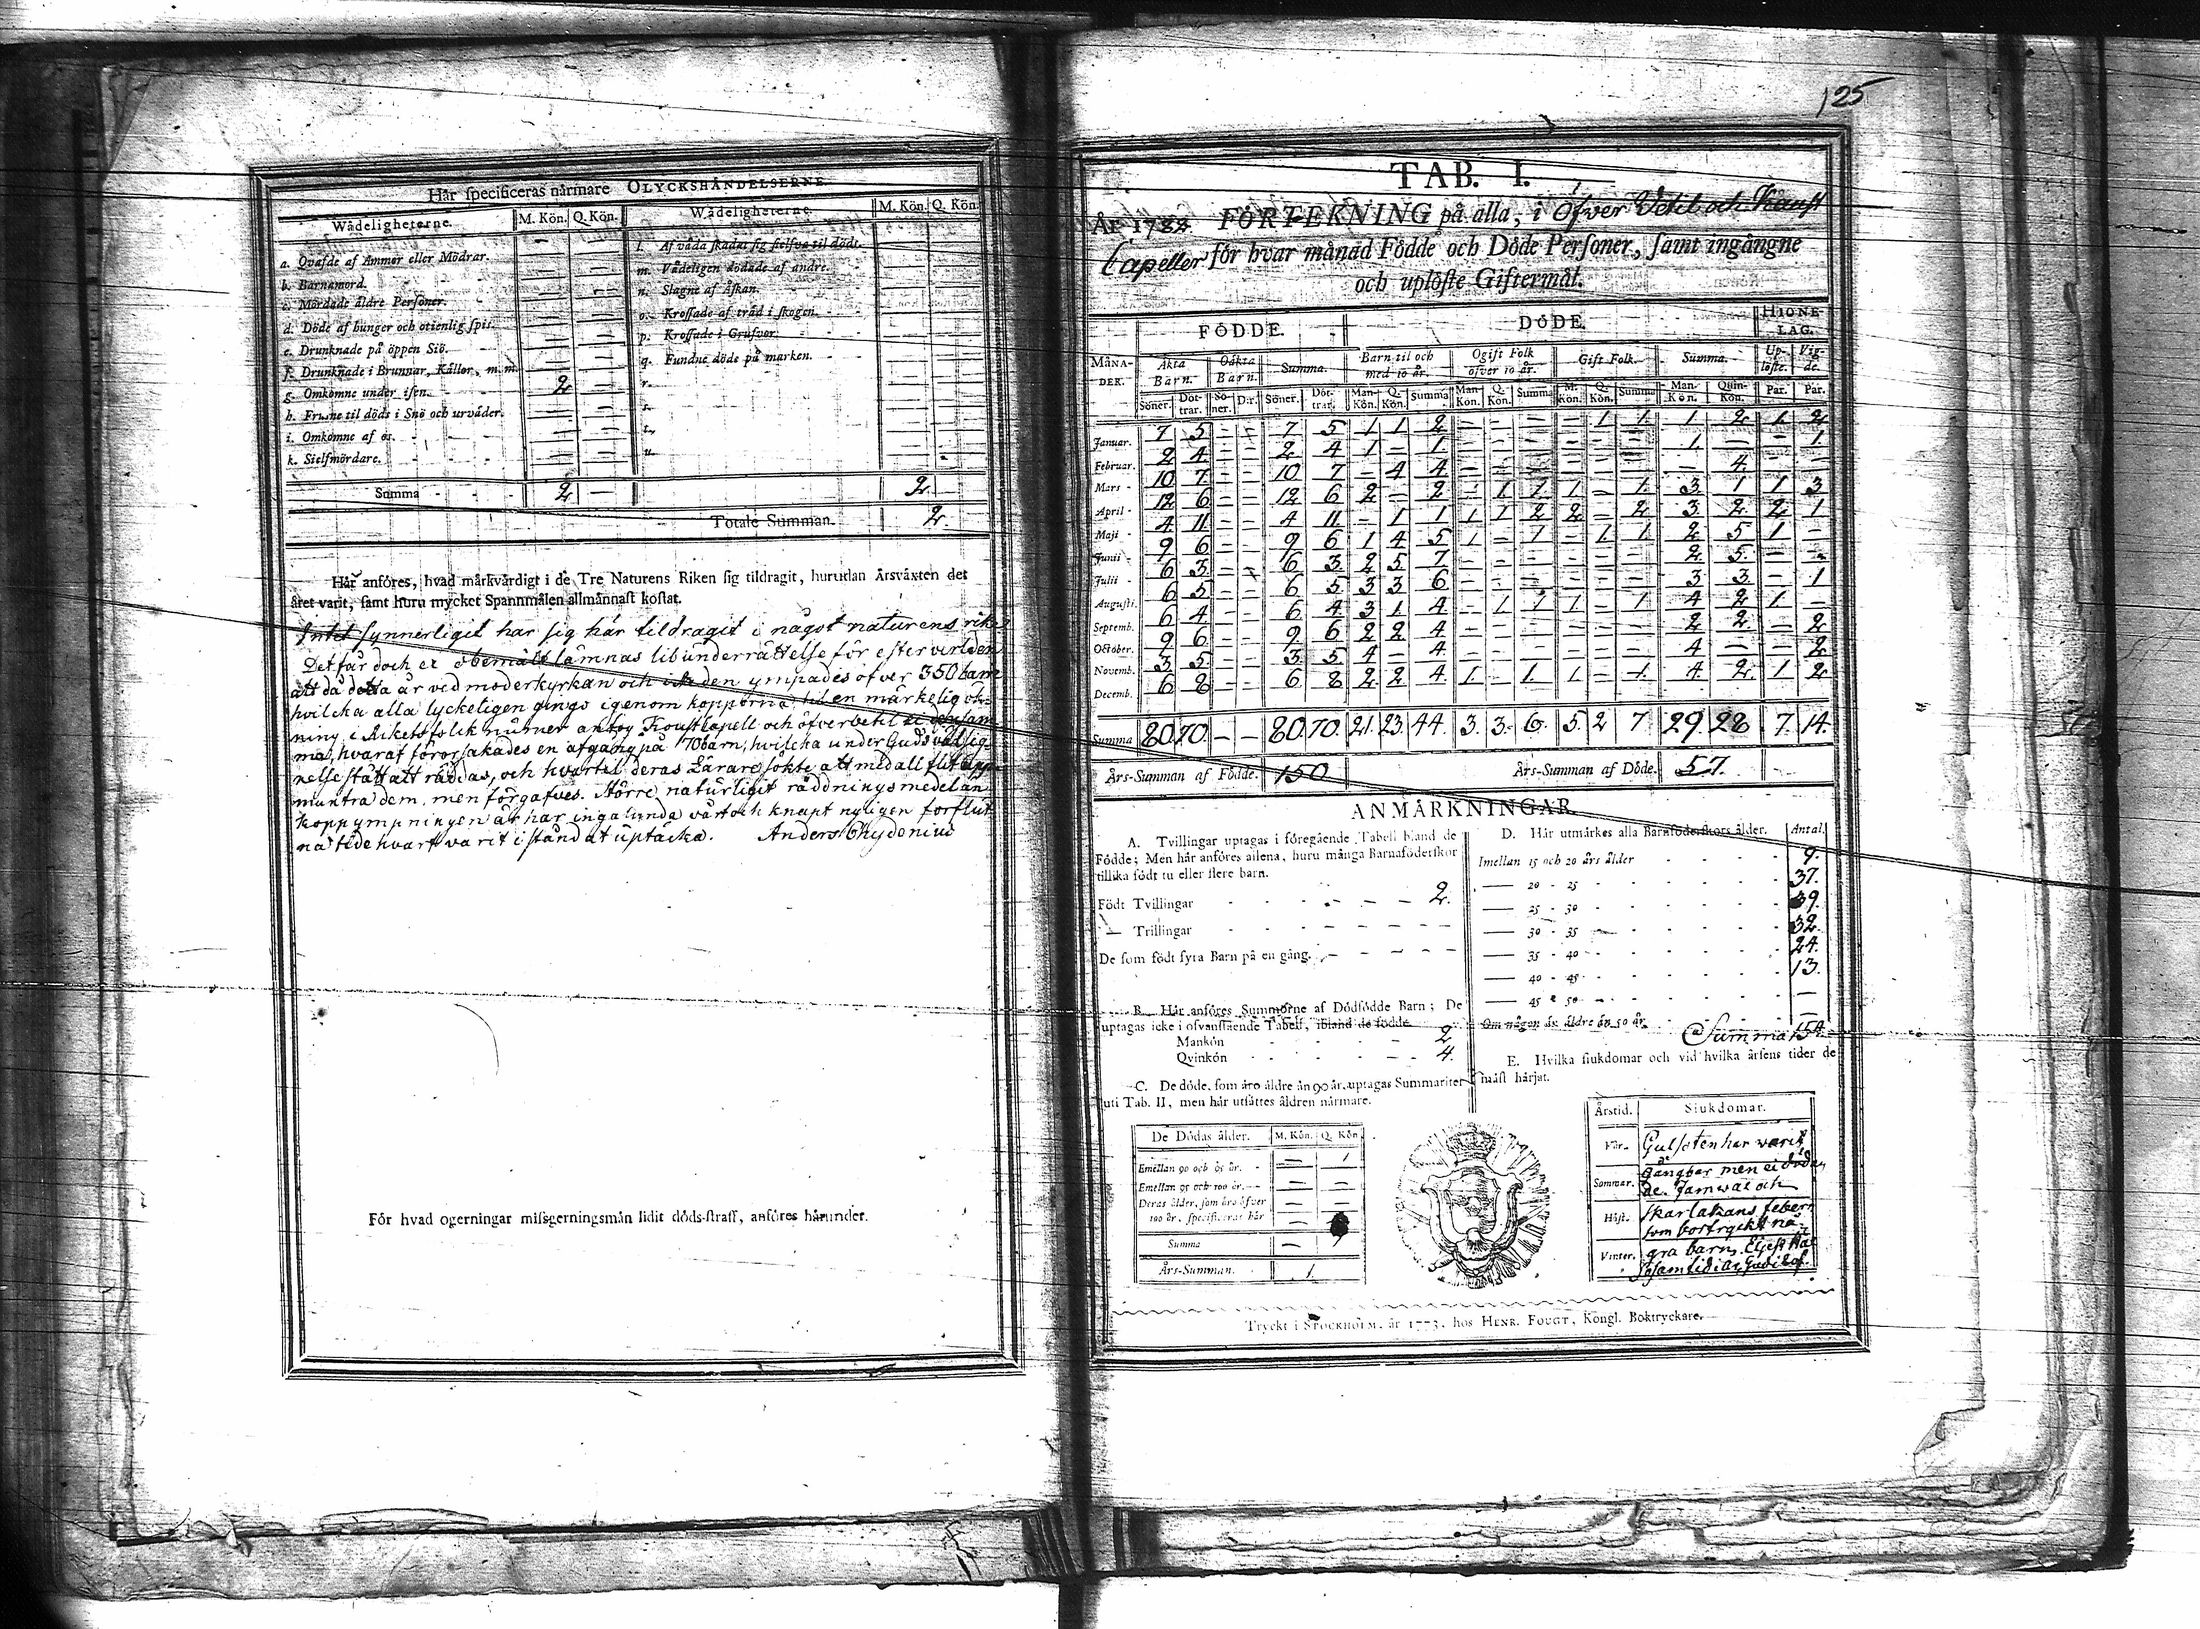 Hår ſpecificeras nårmare OLYCKSHÅNDELSERNE
Wådeligheterne. M. Kön. Q. Kön. Wådeligheterne. M. Kön. Q. Kön.
a. Qvafde af Ammor eller Mödrar. — — l. Af våda ſkadat ſig ſielfva til döds. — —
b. Barnamord. — — m. Vådeligen dödade af andre. — —
c. Mördade åldre Perſoner. — — n. Slagne af Åſkan. — —
d. Döde af hunger och otienlig ſpis. — — o. Kroſſade af tråd i ſkogen. — —
e. Drunknade på öppen Siö. — — p. Kroſſade i Grufvor. — —
f. Drunknade i Brunnar, Kållor, m. m. — — q. Fundne döde på marken. — —
g. Omkomne under iſen. 2 — r.
h. Fruſne til döds i Snö och urvåder. — — s.
i. Omkomne af os. — — t.
k. Sielfmördare. — — u.
Summa 2 — 2
Totale Summan. 2
Hår anföres, hvad mårkvårdigt i de Tre Naturens Riken ſig tildragit, hurudan Årsvåxten det
året varit, ſamt huru mycket Spannmålen allmånnaſt koſtat.
Intet ſynnerligit har ſig här tildragit i något naturens rike
Det får doch ei obemält lämnas til underrättelse för efterverlden
att då detta år ved moderkyrkan och ympades öfver 350 barn
hvilcka alla lyckeligen gingo igenom kopporna til en märkelig ök-
ning i Rikets folck nummer antog Koust Capell och öfvervetil ei
ma, hvaraf förorsakades en afgang på 70 barn, hvilcka under Guds välsig
nelse stått att räddas, och hvartil deras Lärare sökte att med all flit upp
muntra dem, men förgäfves. Större naturligit räddningsmedel än
koppympningen är har ingalunda vårt och knapt nyligen förflut
na tidehvarf varit i stånd at uptäcka. Anders Chydenius
För hvad ogerningar miſsgerningsmån lidit döds-ſtraff, anföres hårunder.
125
TAB. I.
År 1788. FÖRTEKNING på alla, i Öfver Vetil och Kaust
Capeller för hvar månad Födde och Döde Perſoner, ſamt ingångne
och uplöſte Giftermål.
FÖDDE. DÖDE. HIONE-LAG.
MÅNA-DER. Åkta Barn. Oåkta Barn. Summa. Barn til och med 10 år. Ogift Folk öfver 10 år. Gift Folk. Summa. Up-löſte. Vig-de.
Söner. Döt-trar. Sö-ner. D:r. Söner. Döt-trar. Man-Kön. Q. Kön. Summa Man-Kön. Q. Kön. Summa M. Kön. Q. Kön. Summa Man-Kön. Quin-Kön. Par. Par.
Januar. 7 5 — — 7 5 1 1 2 — — — — 1 1 1 2 1 2
Februar. 2 4 — — 2 4 1 — 1 — — — — — — 1 — — 1
Mars 10 7 — — 10 7 — 4 4 — — — — — — — 4 — —
April 12 6 — — 12 6 2 — 2 — 1 1 1 — 1 3 1 1 3
Maji 4 11 — — 4 11 — 1 1 1 1 2 2 — 2 3 2 2 1
Junii 9 6 — — 9 6 1 4 5 1 — 1 — 1 1 2 5 1 —
Julii 6 3 — — 6 3 2 5 7 — — — — — — 2 5 — —
Auguſti. 6 5 — — 6 5 3 3 6 — — — — — — 3 3 — 1
Septemb. 6 4 — — 6 4 3 1 4 — 1 1 1 — 1 4 2 1 —
October. 9 6 — — 9 6 2 2 4 — — — — — — 2 2 — 2
Novemb. 3 5 — — 3 5 4 — 4 — — — — — — 4 — — 2
Decemb. 6 8 — — 6 8 2 2 4 1 — 1 1 — 1 4 2 1 2
Summa 80 70 — — 80 70 21 23 44 3 3 6 5 2 7 29 28 7 14
Års-Summan af Födde. 150 Års-Summan af Döde. 57
ANMÅRKNINGAR.
A. Tvillingar uptagas i föregående Tabell bland de
Födde; Men hår anföres allena, huru många Barnaföderſkor
tillika födt tu eller flere barn.
Födt Tvillingar 2.
— Trillingar — —
De ſom födt fyra Barn på en gång. — —
B. Hår anföres Summorne af Dödfödde Barn; De
uptagas icke i ofvanſtående Tabell, ibland de födde.
Mankön 2
Qvinkön 4.
C. De döde, ſom åro åldre ån 90 år, uptagas Summariter
uti Tab. II, men hår utſåttes åldren nårmare.
De Dödas ålder. M. Kön. Q. Kön
Emellan 90 och 95 år. — 1
Emellan 95 och 100 år. — —
Deras ålder, ſom åro öfver
100 år, ſpecificeras hår —
Summa —
Års-Summan. 1.
D. Hår utmårkes alla Barnföderſkors ålder. Antal.
Imellan 15 och 20 års ålder 9.
— 20 - 25 37.
— 25 - 30 39.
— 30 - 35 32.
— 35 - 40 24.
— 40 - 45 13.
— 45 - 50 —
Om någon år åldre ån 50 år. —
Summa 154.
E. Hvilka ſiukdomar och vid hvilka årſens tider de
måſt hårjat.
Årstid. Siukdomar.
Vår. Gulsoten har varit
Sommar. gångbar men ei dödan
de. Jamwäl och
Höſt. skarlakans feber
som bortryckt nå
Vinter. gra barn.
Tryckt i STOCKHOLM, år 1773, hos HENR. FOUGT, Kongl. Boktryckare.